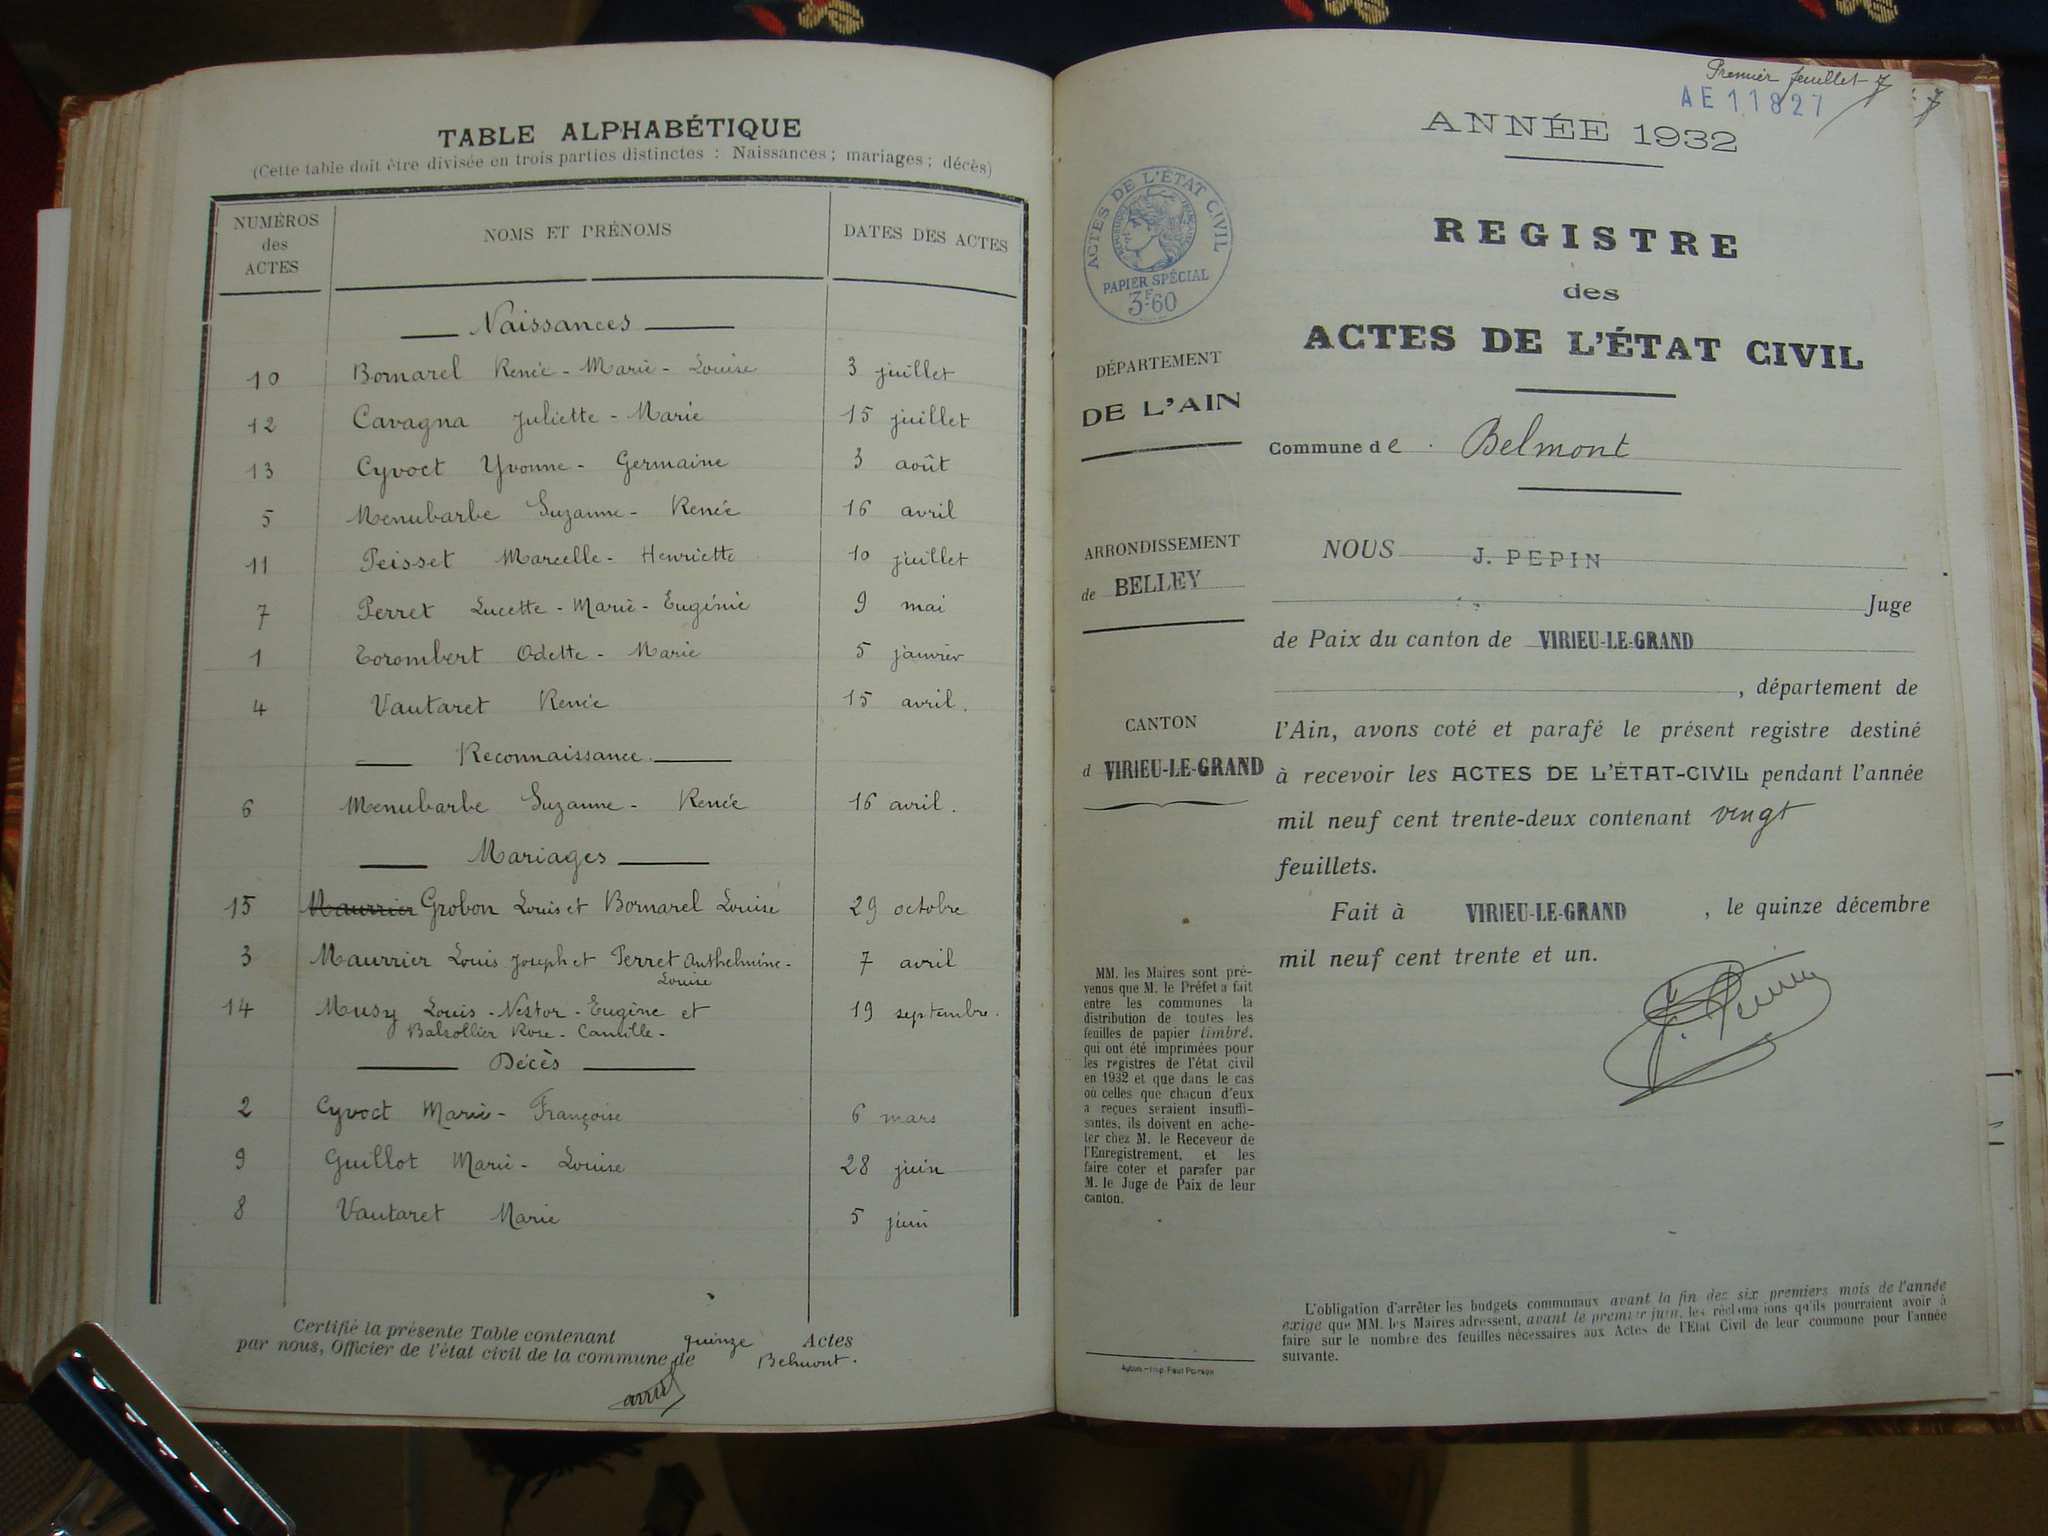 TABLE ALPHABÉTIQUE
(Cette table doit être divisée en trois parties distinctes : Naissances ; mariages ; décès)
NUMÉROS des ACTES NOMS ET PRÉNOMS DATES DES ACTES
Naissances
10 Bornarel Renée - Marie - Louise 3 juillet
12 Cavagna Juliette - Marie 15 juillet
13 Cyvoct Yvonne - Germaine 3 août
5 Menubarbe Suzanne - Renée 16 avril
11 Peisset Marcelle - Henriette 10 juillet
7 Perret Lucette - Marie - Eugénie 9 mai
1 Torombert Odette - Marie 5 janvier
4 Vautaret Renée 15 avril.
Reconnaissance.
6 Menubarbe Suzanne - Renée 16 avril.
Mariages
15 Maurrier Grobon Louis et Bornarel Louise 29 octobre
3 Maurrier Louis Joseph et Perret Anthelmine - 7 avril
Louise
14 Musy Louis - Nestor - Eugène et 19 septembre.
Balsollier Rose - Camille -
Décès
2 Cyvoct Marie - Françoise 6 mars
9 Guillot Marie - Louise 28 juin
8 Vautaret Marie 5 juin
Certifié la présente Table contenant quinze Actes
par nous, Officier de l'état civil de la commune de Belmont.
Premier feuillet
AE11827
ANNÉE 1932
REGISTRE
des
ACTES DE L'ÉTAT CIVIL
ACTES DE L'ÉTAT CIVIL
RÉPUBLIQUE FRANÇAISE
PAPIER SPÉCIAL
3F.60
DÉPARTEMENT
DE L'AIN
Commune de . Belmont
ARRONDISSEMENT
de BELLEY
CANTON
d VIRIEU-LE-GRAND
NOUS J. PEPIN
Juge
de Paix du canton de VIRIEU-LE-GRAND
, département de
l'Ain, avons coté et parafé le présent registre destiné
à recevoir les ACTES DE L'ÉTAT-CIVIL pendant l'année
mil neuf cent trente-deux contenant vingt
feuillets.
Fait à VIRIEU-LE-GRAND , le quinze décembre
mil neuf cent trente et un.
MM. les Maires sont pré-
venus que M. le Préfet a fait
entre les communes la
distribution de toutes les
feuilles de papier timbré,
qui ont été imprimées pour
les registres de l'état civil
en 1932 et que dans le cas
où celles que chacun d'eux
a reçues seraient insuffi-
santes, ils doivent en ache-
ter chez M. le Receveur de
l'Enregistrement, et les
faire coter et parafer par
M. le Juge de Paix de leur
canton.
L'obligation d'arrêter les budgets communaux avant la fin des six premiers mois de l'année
exige que MM. les Maires adressent, avant le premier juin, les réclamations qu'ils pourraient avoir à
faire sur le nombre des feuilles nécessaires aux Actes de l'Etat Civil de leur commune pour l'année
suivante.